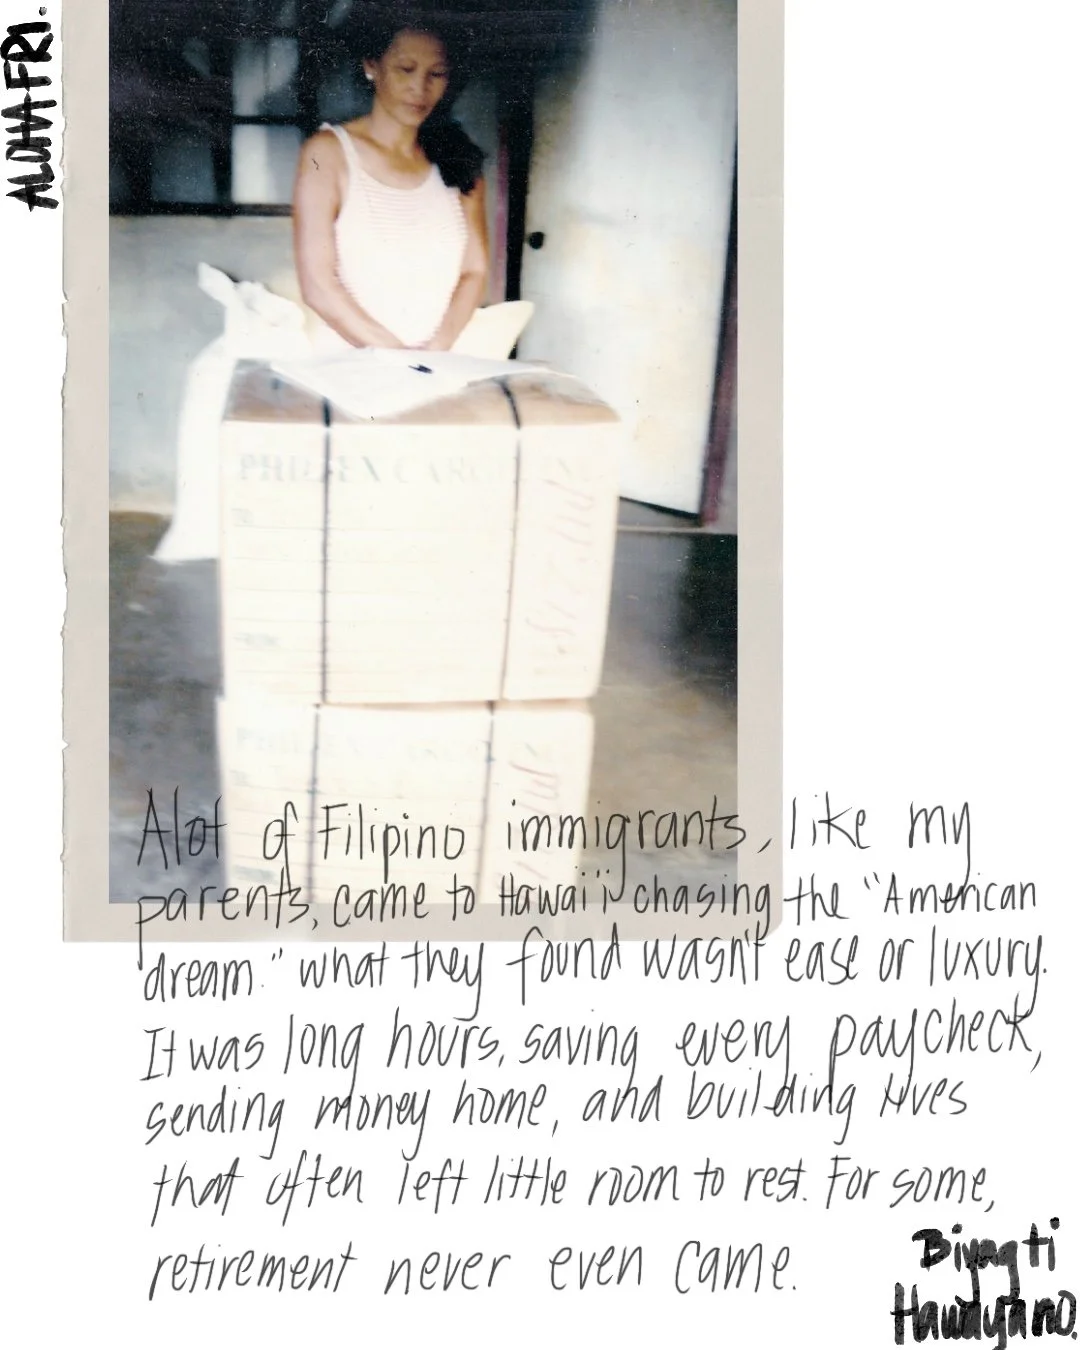 ALOHA FRI.
PHILEX CARGO
Alot of Filipino immigrants, like my
parents, came to Hawaiʻi chasing the "American
dream." what they found wasn't ease or luxury.
It was long hours, saving every paycheck,
sending money home, and building lives
that often left little room to rest. For some,
retirement never even came.
Biyag ti
Hawayano.